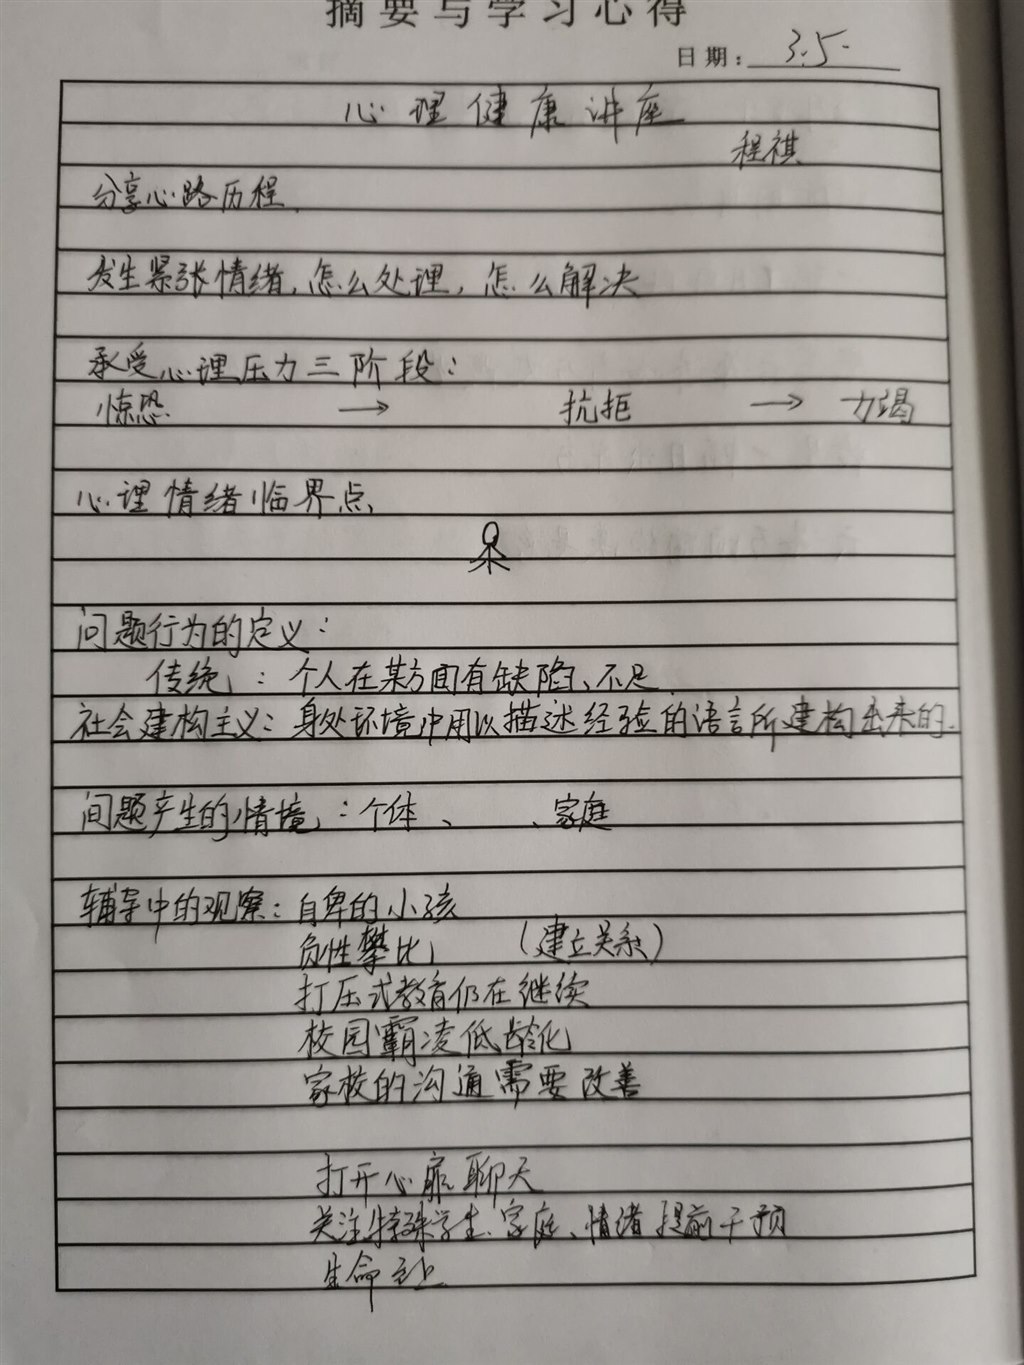 摘要与学习心得
日期：3.5.
心理健康讲座
程祺
分享心路历程.
发生紧张情绪,怎么处理,怎么解决
承受心理压力三阶段:
惊恐 → 抗拒 → 力竭
心理情绪临界点
问题行为的定义:
传统: 个人在某方面有缺陷、不足.
社会建构主义: 身处环境中用以描述经验的语言所建构出来的.
问题产生的情境: 个体、 、家庭
辅导中的观察: 自卑的小孩
负性攀比 (建立关系)
打压式教育仍在继续
校园霸凌低龄化
家校的沟通需要改善
打开心扉聊天
关注特殊学生、家庭、情绪提前干预
生命至上